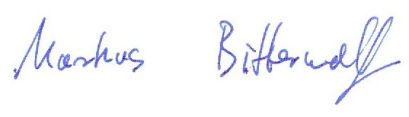 Markus Bitterwolf